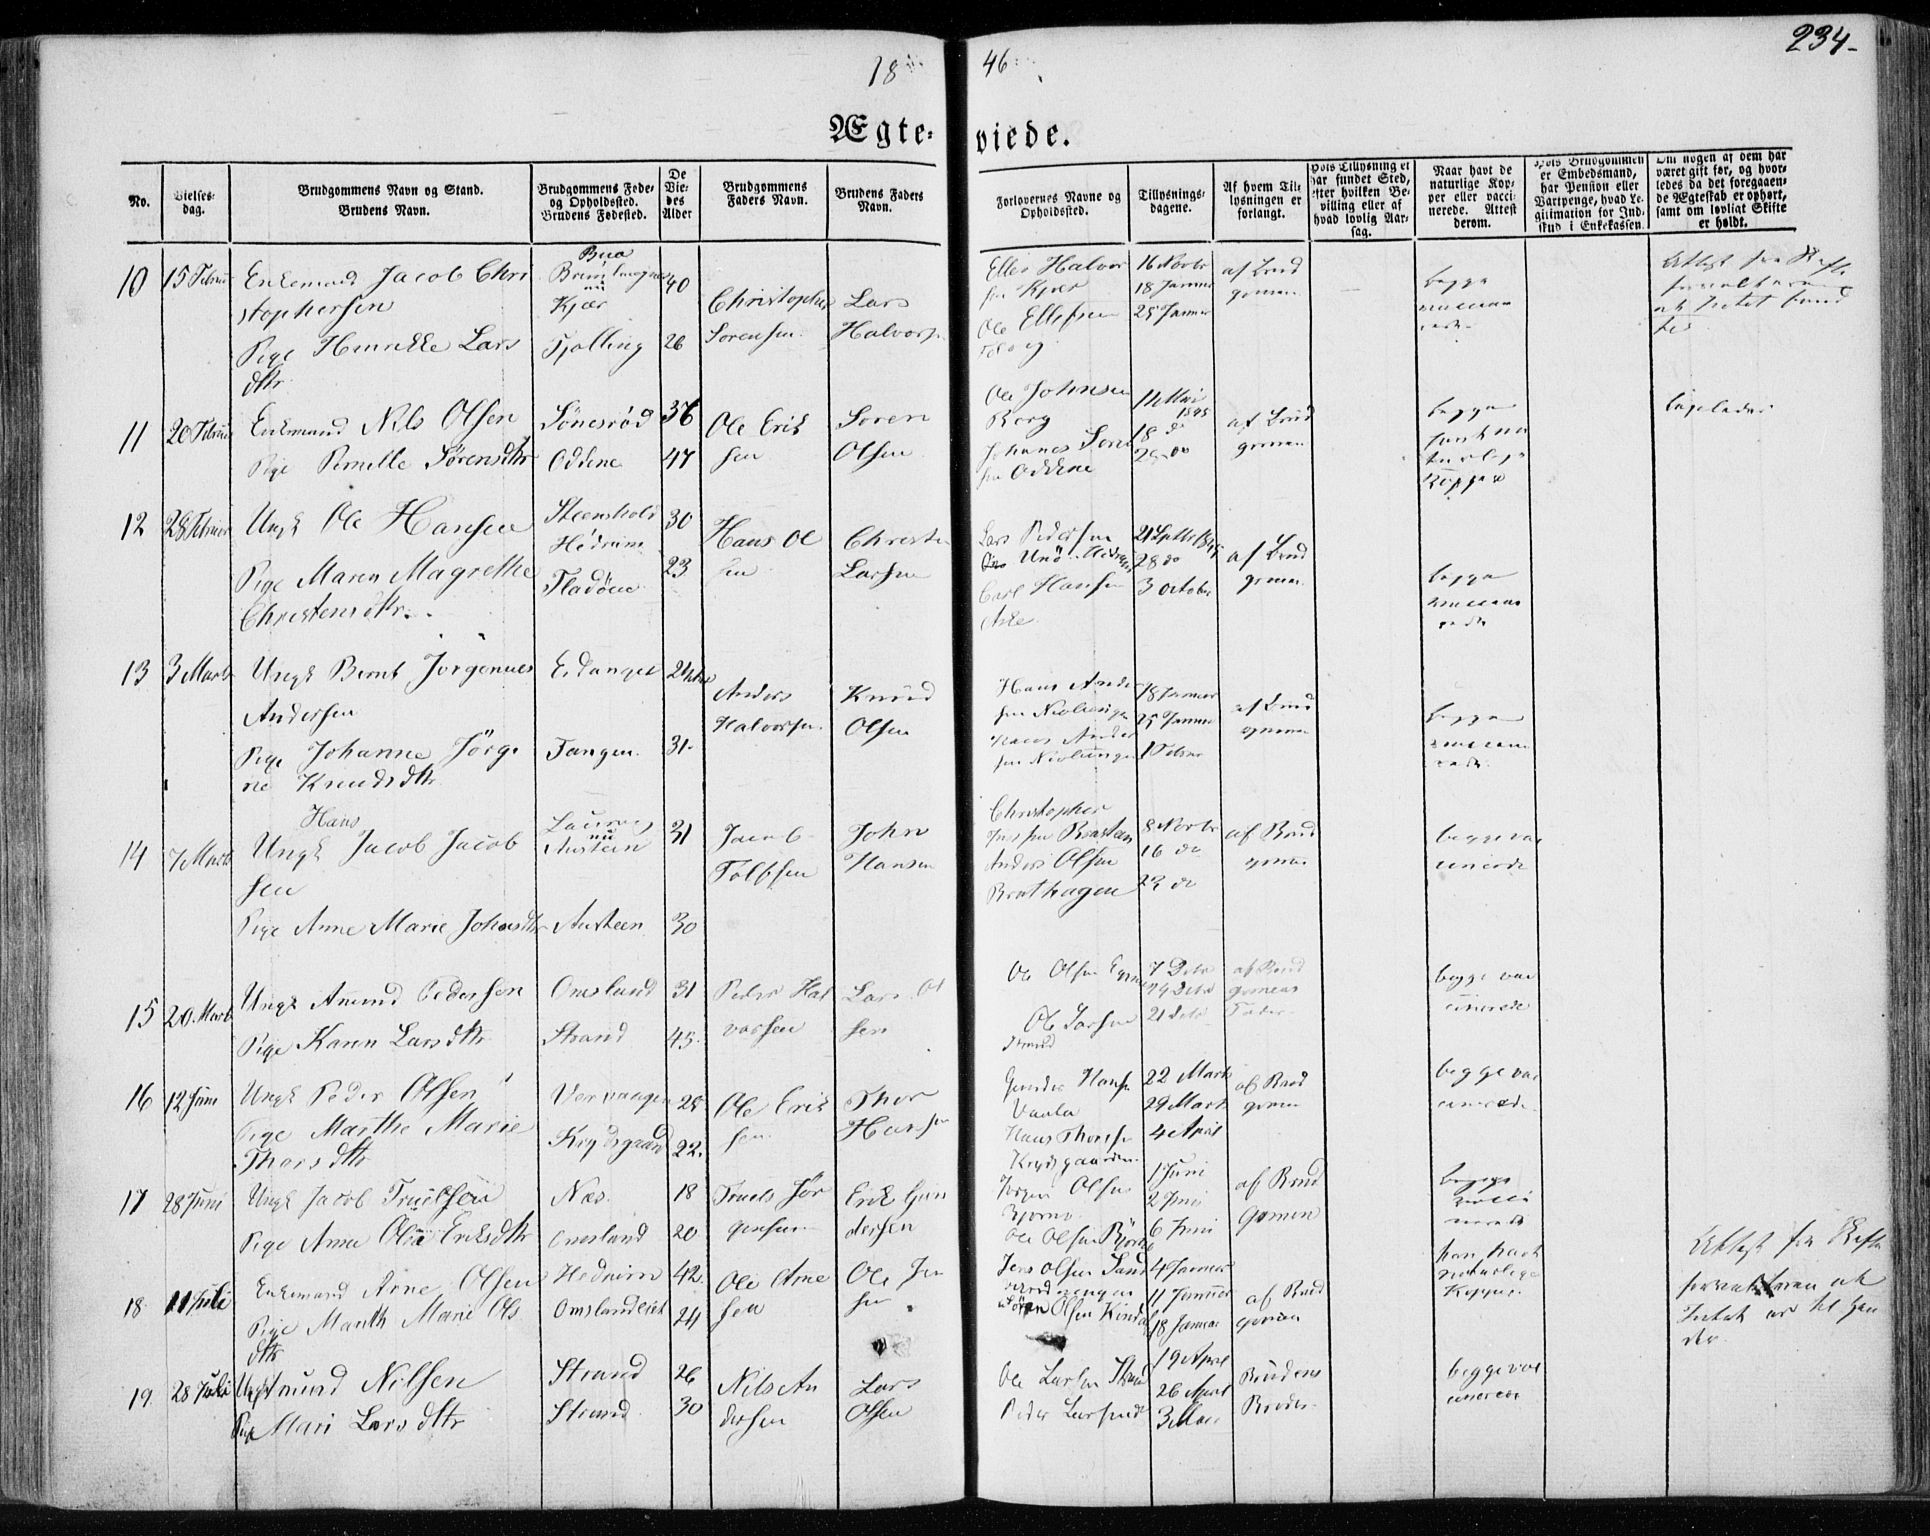 234-
18 46
Ægte- viede.
No.
Vielses-
dag.
Brudgommens Navn og Stand.
Brudens Navn.
Brudgommens Føde-
og Opholdssted.
Brudens Fødested.
De
Vie-
des
Alder
Brudgommens
Faders Navn.
Brudens Faders
Navn.
Forlovernes Navne og
Opholdssted.
Tillysnings-
dagene.
Af hvem Til-
lysningen er
forlangt.
Hvis Tillysning ei
har fundet Sted,
efter hvilken Be-
villing eller af
hvad lovlig Aar-
sag.
Naar havt de
naturlige Kop-
per eller vacci-
nerede. Attest
derom.
Hvis Brudgommen
er Embedsmand,
har Pension eller
Vartpenge, hvad Le-
gitimation for Ind-
skud i Enkekassen.
Om nogen af dem har
været gift før, og hvor-
ledes da det foregaaen-
de Ægteskab er ophørt,
samt om lovligt Skifte
er holdt.
10 15 Februar
Enkemand Jacob Chri
stophersen
Pige Henrikke Lars
dtr
nu
Kjær
Tjølling
40
26
Christopher
Sørensen
Lars
Halvors
Ellef Halvor
sen Kjær
Ole Ellefsen
16 Novbr
18 Januar
25 Januar
af Brud
gomen
begge
11 20 Februar
Enkemand Nils Olsen
Pige Pernille Sørensdtr
Sönesröd
Oddene
36
47
Ole Erik
sen
Søren
Olsen
Ole Johnsen
Berg
Johanes Søren
sen Oddene
11 Mai
1845
18 do
do
af Brud
gomen
begge
12 28 Februar
Ungk Ole Hansen
Pige Maren Magrethe
Christensdtr.
Steensholt
Hedrum
Fladöen
30
23
Hans Ol
sen
Christen
Larsen
Lars Pedersen
Carl Hansen
Aske
28 do
3 October
af Brud
gomen
begge
13 3 Marts
Ungk Bernt Jørgenues
Andersen
Pige Johanne Jörgi
ne Knudsdtr
Eidanger
Tangen
31
Anders
Halvorsen
Knud
Olsen
Hans Ander
sen
Hans Ander
sen
18 Januar
25 Januar
1 Febru
af Brud
gomen
begge
14 7 Marts
Hans
Ungk Jacob Jacob
sen
Pige Anne Marie Johnsdtr
Laurvig
nu
Austeen
Austeen
31
30
Jacob
Tolfsen
John
Hansen
Christopher
Anders Olsen
Brathagen
8 Novbr
16 do
23 do
af Brud
gomen
begge vac
cinerede
15 20 Marts
Ungk Amund Pedersen
Pige Karen Larsdtr
Omsland
Strand
31
45.
Peder Hal
vorsen
Lars Ol
sen
Ole Olsen
Ole Larsen
Strand
7 Debr
14 Debr
21 Debr
af Brud
gomens
Fader
begge vac
cinerede
16 12 Juni
Ungk Peder Olsen
Pige Marthe Marie
Thorsdtr
Vervaagen
Krydsgaard
28
22.
Ole Erik
sen
Thor
Hansen
Gunder Hansen
Vaula
Hans Thorsen
Krydsgaarden
22 Marts
29 Marts
4 April
af Brud
gomen
begge vac
cinerede
17 28 Juni
Ungk Jacob Truelsen
Pige Anne Olea Eriksdtr
Næs
Omsland
18
20
Truels Jør
gensen
Erik Gun
dersen
Jørgen Olsen
Bjørnø
Ole Olsen Björnö
1 Juni
2 Juni
6 Juni
af Brud
gomen
begge
vacci
nerede
18 11 Juli
Enkemand Arne Olsen
Pige Marth Marie Ols
dtr
Hedrum
Omslandseiet
42
24
Ole Arne
sen
Ole Jen
sen
Jens Olsen Sand
4 Januar
11 Januar
18 Januar
af Brud
gomen
han havt
naturlige
Kopper
Attest fra Skifte
forvalteren at
Intet er til Hin
der
19 28 Juli
Ungk Amund Nilsen
Pige Mari Larsdtr
Strand
Strand
26
30
Nils An
dersen
Lars
Olsen
Ole Larsen Strand
Peder Larsen
19 April
26 April
3 Mai
Brudens
Broder
begge vac
cinerede